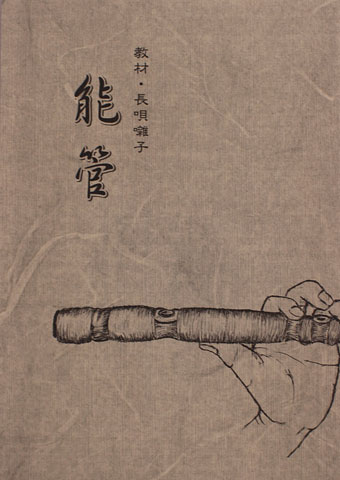 教材・長唄囃子
能管